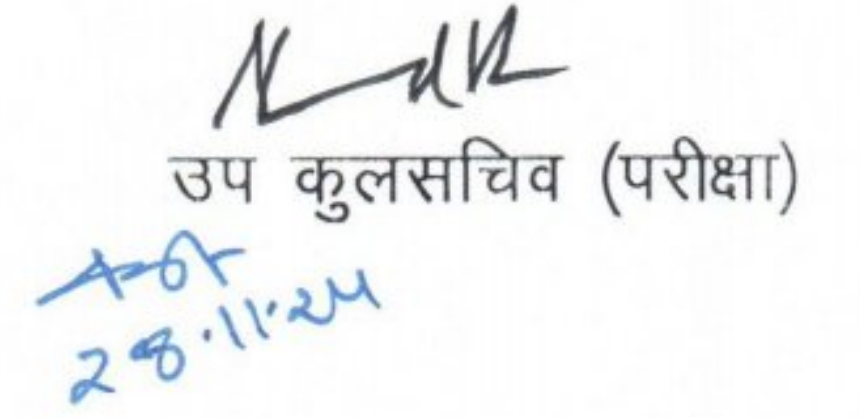 उप कुलसचिव (परीक्षा)
28.11.24